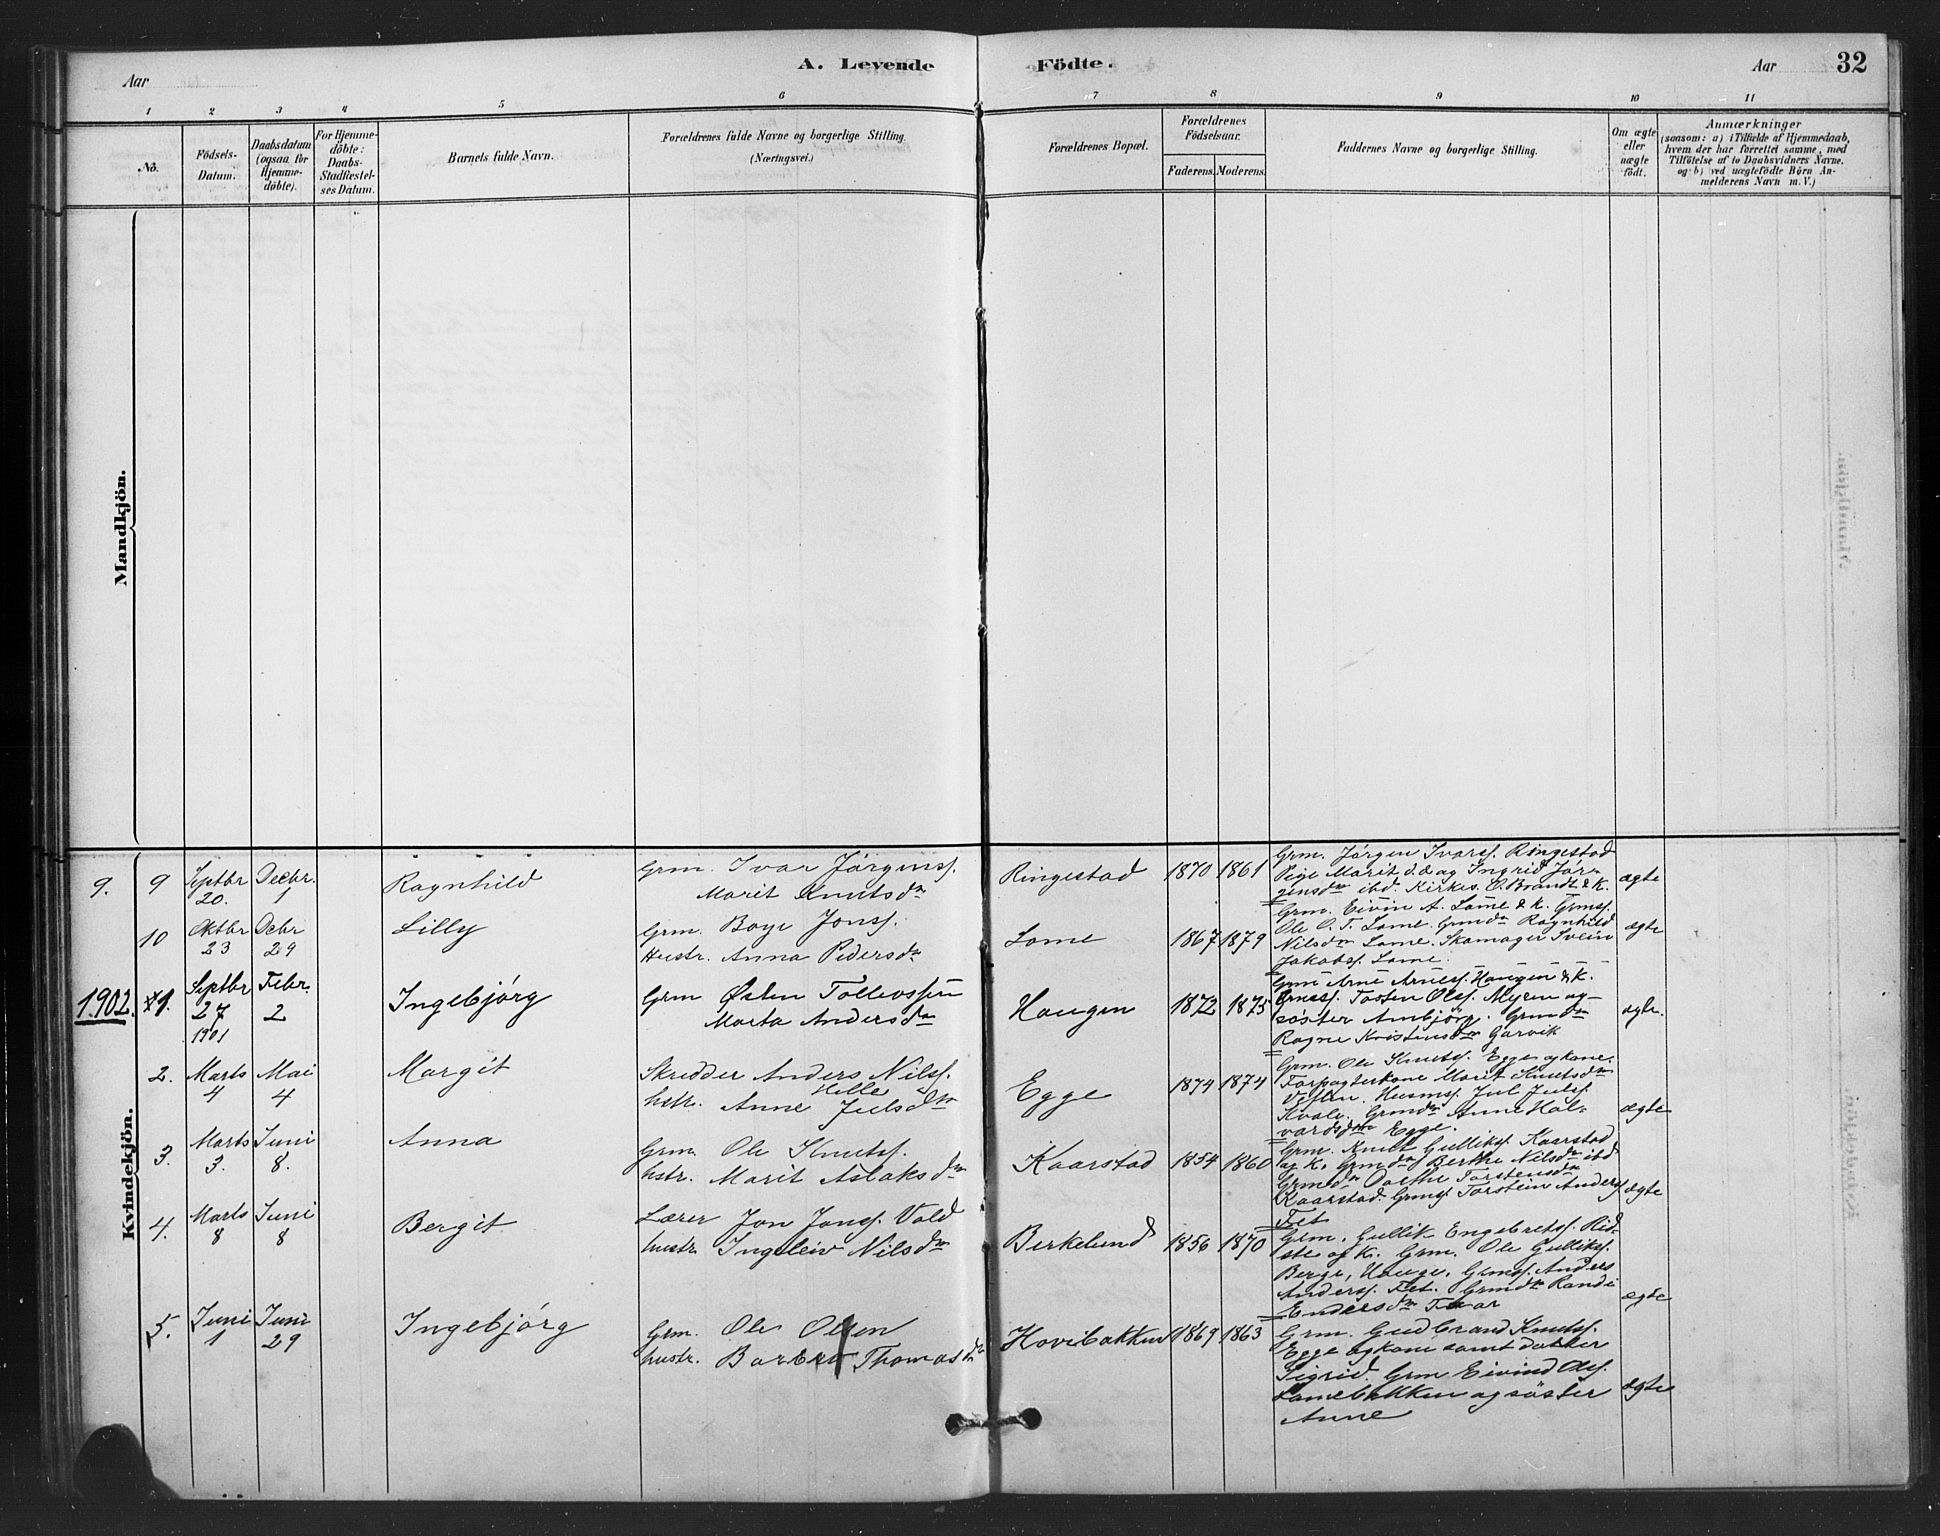 Aar
A. Levende Födte.
Aar
32
1 2 3 4 5 6 7 8 9 10 11
No.
Födsels-Datum.
Daabsdatum (ogsaa for Hjemme-döbte).
For Hjemme-döbte: Daabs-Stadfæstel-ses Datum.
Barnets fulde Navn.
Forældrenes fulde Navne og borgerlige Stilling. (Næringsvei.)
Forældrenes Bopæl.
Forældrenes Födselsaar.
Faderens. Moderens.
Faddernes Navne og borgerlige Stilling.
Om ægte eller uægte födt.
Anmærkninger
(saasom: a) i Tilfælde af Hjemmedaab,
hvem der har forrettet samme, med
Tilföielse af to Daabsvidners Navne.
og b) ved uægtefödte Börn An-
melderens Navn m. V.)
Mandkjön.
Kvindekjön.
9. 9 Septbr 20. Decbr. 1
Ragnhild
Grm. Ivar Jørgenss.
Marit Knutsdr
Ringestad 1870 1861
Grm. Jørgen Ivarss. Ringestad
Pige Marit d.d. og Ingrid Jør-
gensdr ibd. Kirkes. O. Brandt & K.
ægte
10 Oktbr 23 Decbr 29
Lilly
Grm. Boye Jonss.
Hustr. Anna Pedersdr
Lome 1867 1879
Grm. Eivin A. Lome & K. Grmss.
Ole O. T. Lome. Grmdr Ragnhild
Nilsdr Lome. Skomager Svein
Jakobss. Lome.
ægte
1902. 1. Septbr 27 1901 Febr. 2
Ingebjörg
Grm Østen Tollevssen
Marta Andersdr
Haugen 1872 1875
Grm Arne Arness. Haugen & K.
Grmss. Tosten Olss. Myren og
söster Ambjörg. Grmdr
Ragne Kristensdr Garvik
ægte.
2. Marts 4 Mai 4
Margit
Skredder Anders Nilss. Hille
hstr. Anne Julsdr
Egge 1874 1874
Grm. Ole Knutss. Egge og kone.
Forpagterkone Marit Knutsdr
Husms. Jul Julss.
Kvale. Grmdr Anne Hal-
vardsdr Egge.
ægte
3. Marts 3. Juni 8.
Anna
Grm. Ole Knutss.
hstr. Marit Aslaksdr
Kaarstad 1854 1860
Grm. Knut Gullikss. Kaarstad
og K. Grmdr Berthe Nilsdr ibd
Grmdr Dorthe Torstensdr
Kaarstad. Grmss. Torstein Anderss.
Fet
ægte
4. Marts 8 Juni 8
Bergit
Lærer Jon Jonss. Vold
hustr. Ingeleiv Nilsdr
Birkelund 1856 1870
Grm. Gullik Engebretss. Rid-
ste og K. Grm. Ole Gullikss.
Berge, Hauge. Grmss. Anders
Anderss. Fet. Grmdr Randi
Endersdr
ægte
5. Juni 1 Juni 29
Ingebjörg
Grm. Ole Olsen
hustr. Barbro Thomasdr
Hovibakken 1869 1863
Grm. Gudbrand Knutss.
Egge og kone samt datter
Sigrid. Grm Eivind Olss.
Lomebakken og söster
Anne
ægte